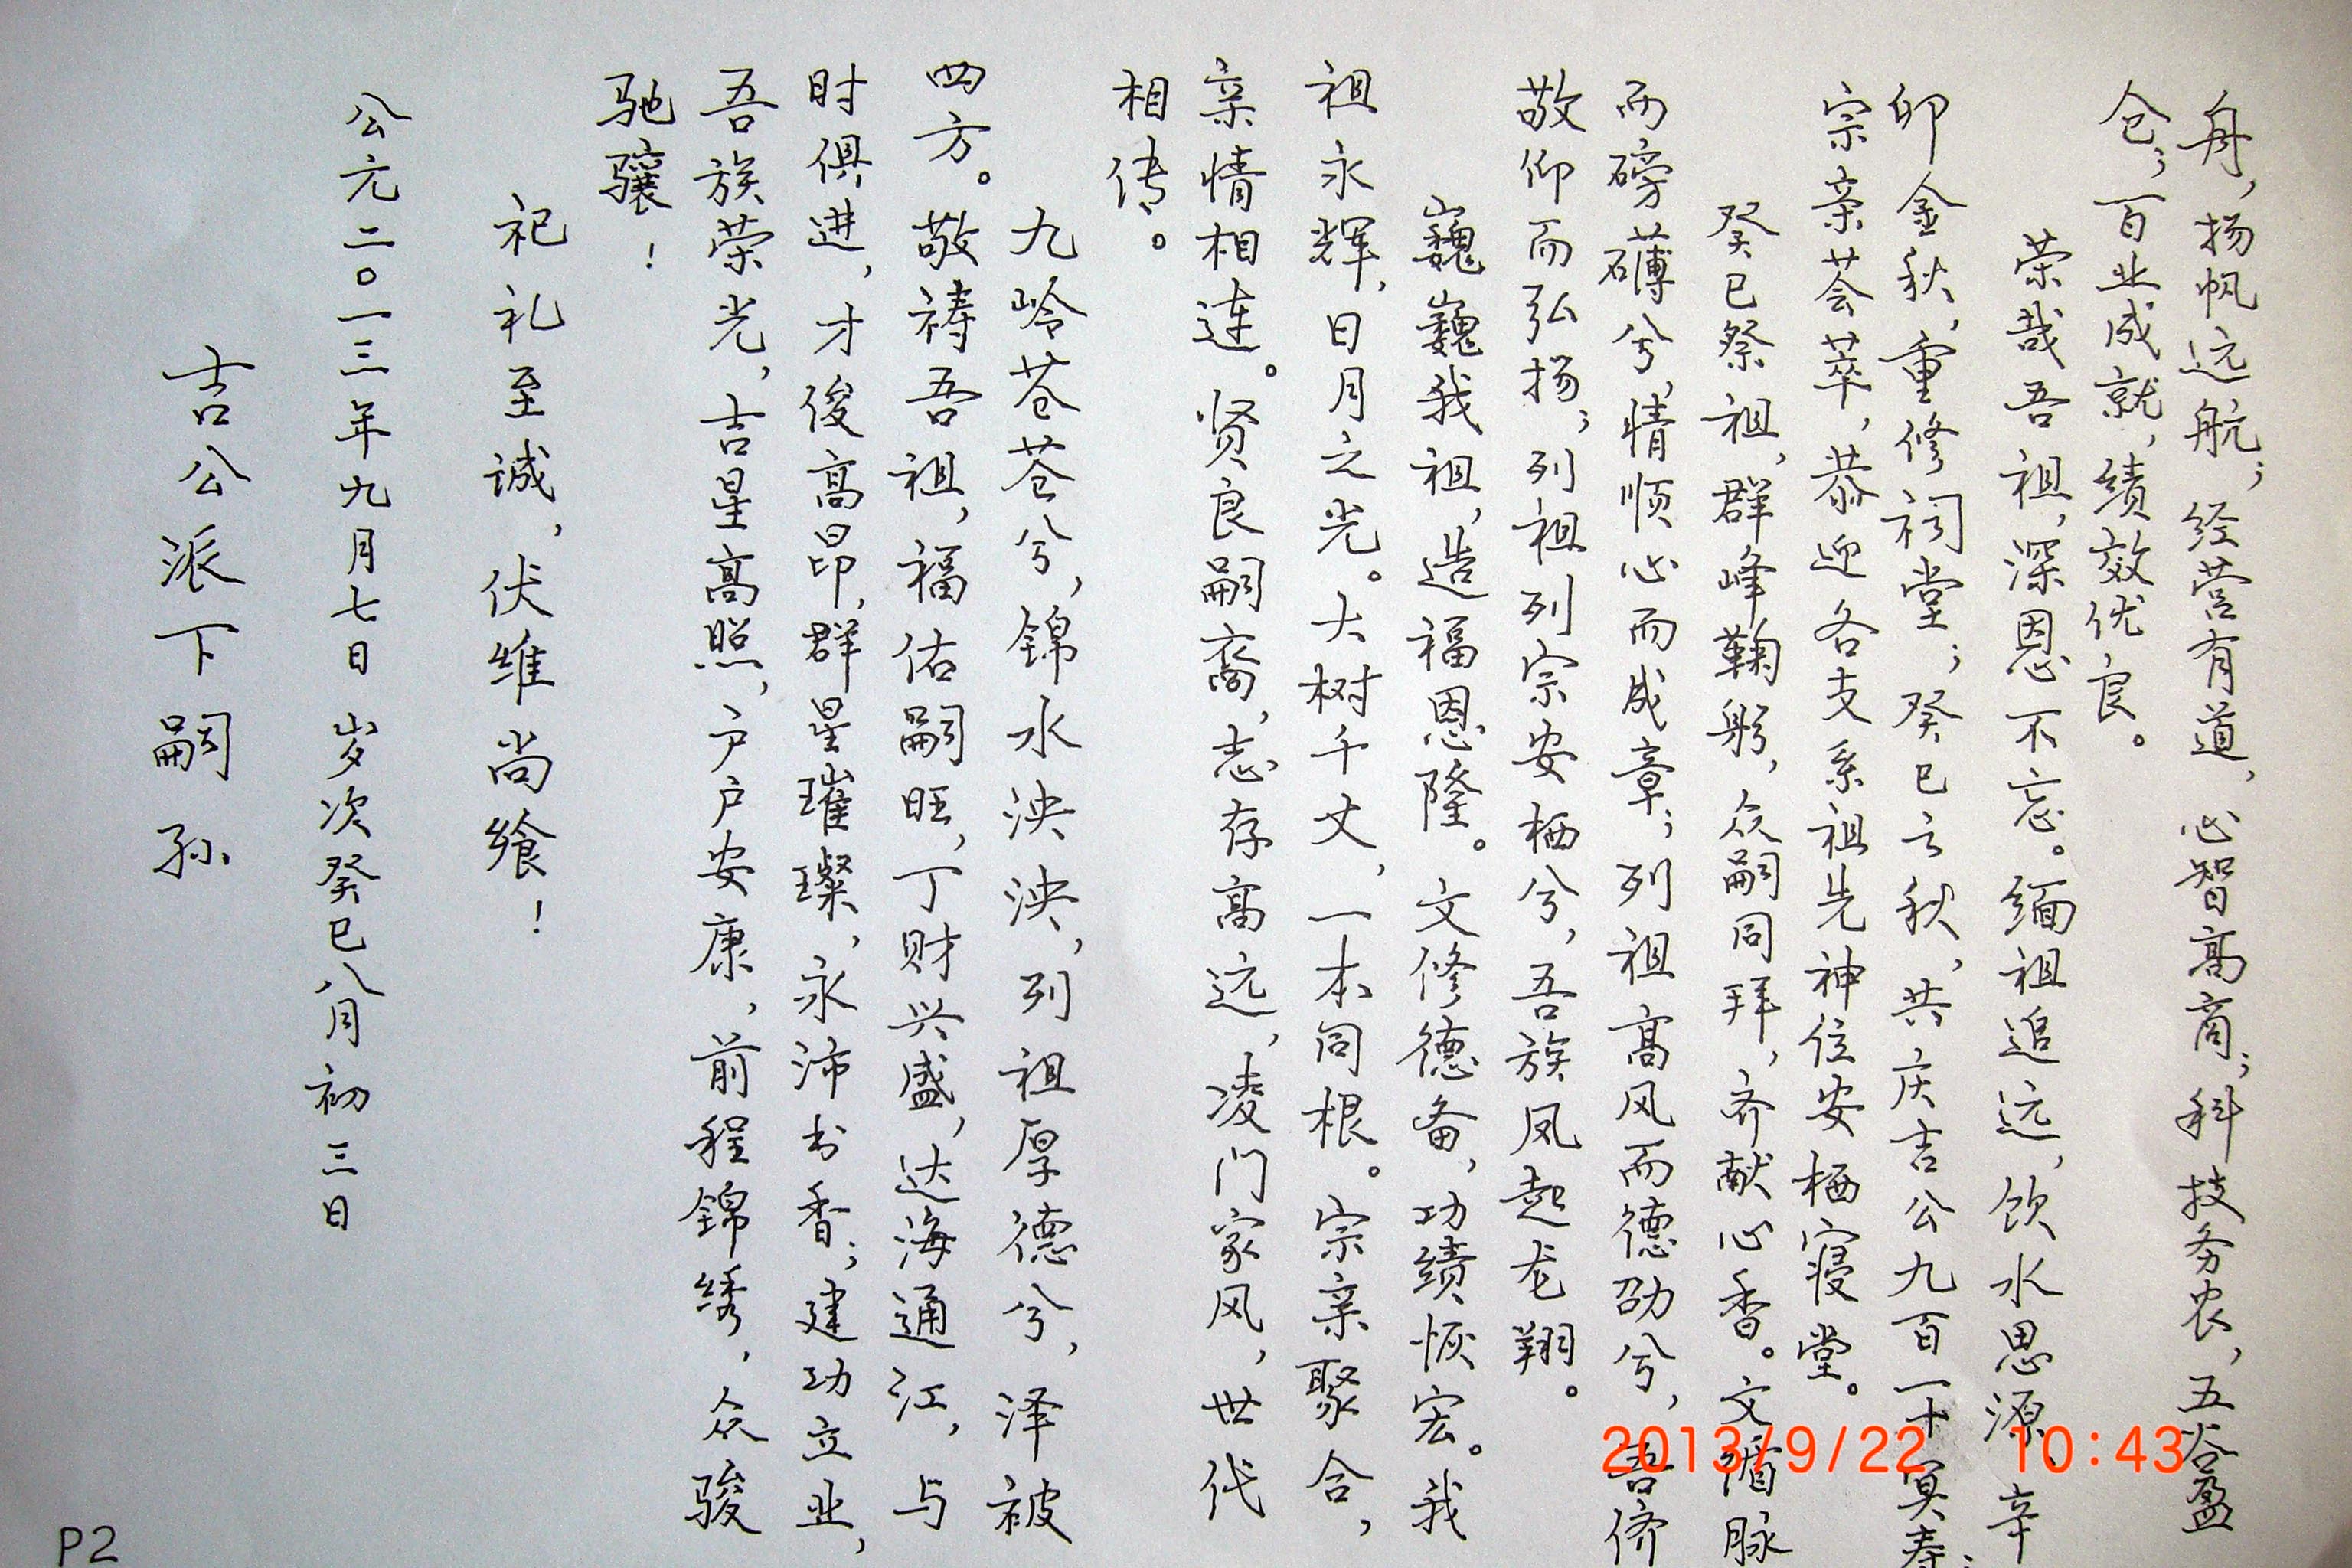 舟，扬帆远航；经营有道，心智高商；科技务农，五谷盈
仓；百业成就，绩效优良。
荣哉吾祖，深恩不忘。缅祖追远，饮水思源，辛
卯金秋，重修祠堂；癸巳之秋，共庆吉公九百一十冥寿；
宗亲荟萃，恭迎各支系祖先神位安栖寝堂。
癸巳祭祖，群峰鞠躬，众嗣同拜，齐献心香。文循脉
而磅礴兮，情顺心而成章；列祖高风而德劭兮，吾侪
敬仰而弘扬；列祖列宗安栖兮，吾族凤起龙翔。
巍巍我祖，造福恩隆。文修德备，功绩恢宏。我
祖永辉，日月之光。大树千丈，一本同根。宗亲聚合，
亲情相连。贤良嗣裔，志存高远，凌门家风，世代
相传。
九岭苍苍兮，锦水泱泱，列祖厚德兮，泽被
四方。敬祷吾祖，福佑嗣旺，丁财兴盛，达海通江，与
时俱进，才俊高昂，群星璀璨，永沛书香；建功立业，
吾族荣光，吉星高照，户户安康，前程锦绣，众骏
驰骧！
祀礼至诚，伏维尚飨！
公元二〇一三年九月七日 岁次癸巳八月初三日
吉公派下嗣孙
P2
2013/9/22 10:43